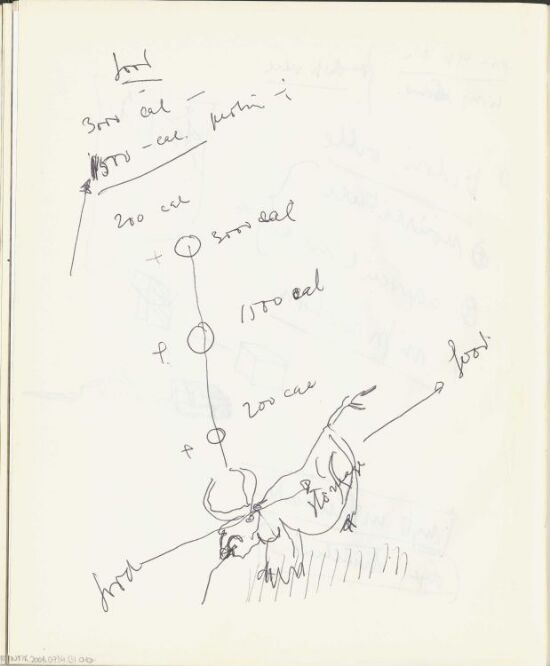 food
3000 cal -
1500 - cal. protein -
200 cal
3000 cal
1500 cal
food
200 cal
storage
food